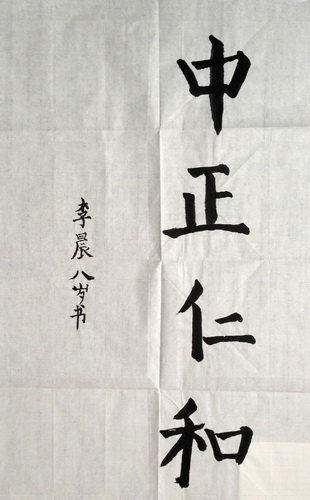 中正仁和
李晨八岁书